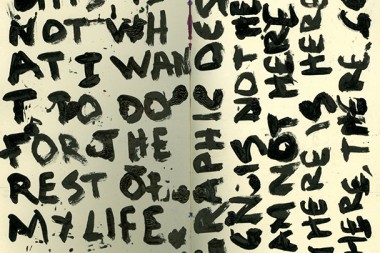 NOT WH
AT I WAN
T TO DO
FOR THE
REST OF
MY LIFE.
RAPHIC DES
GN. IS NOT HE
AM NOT HERE
HERE IS HERE
HERE, THERE